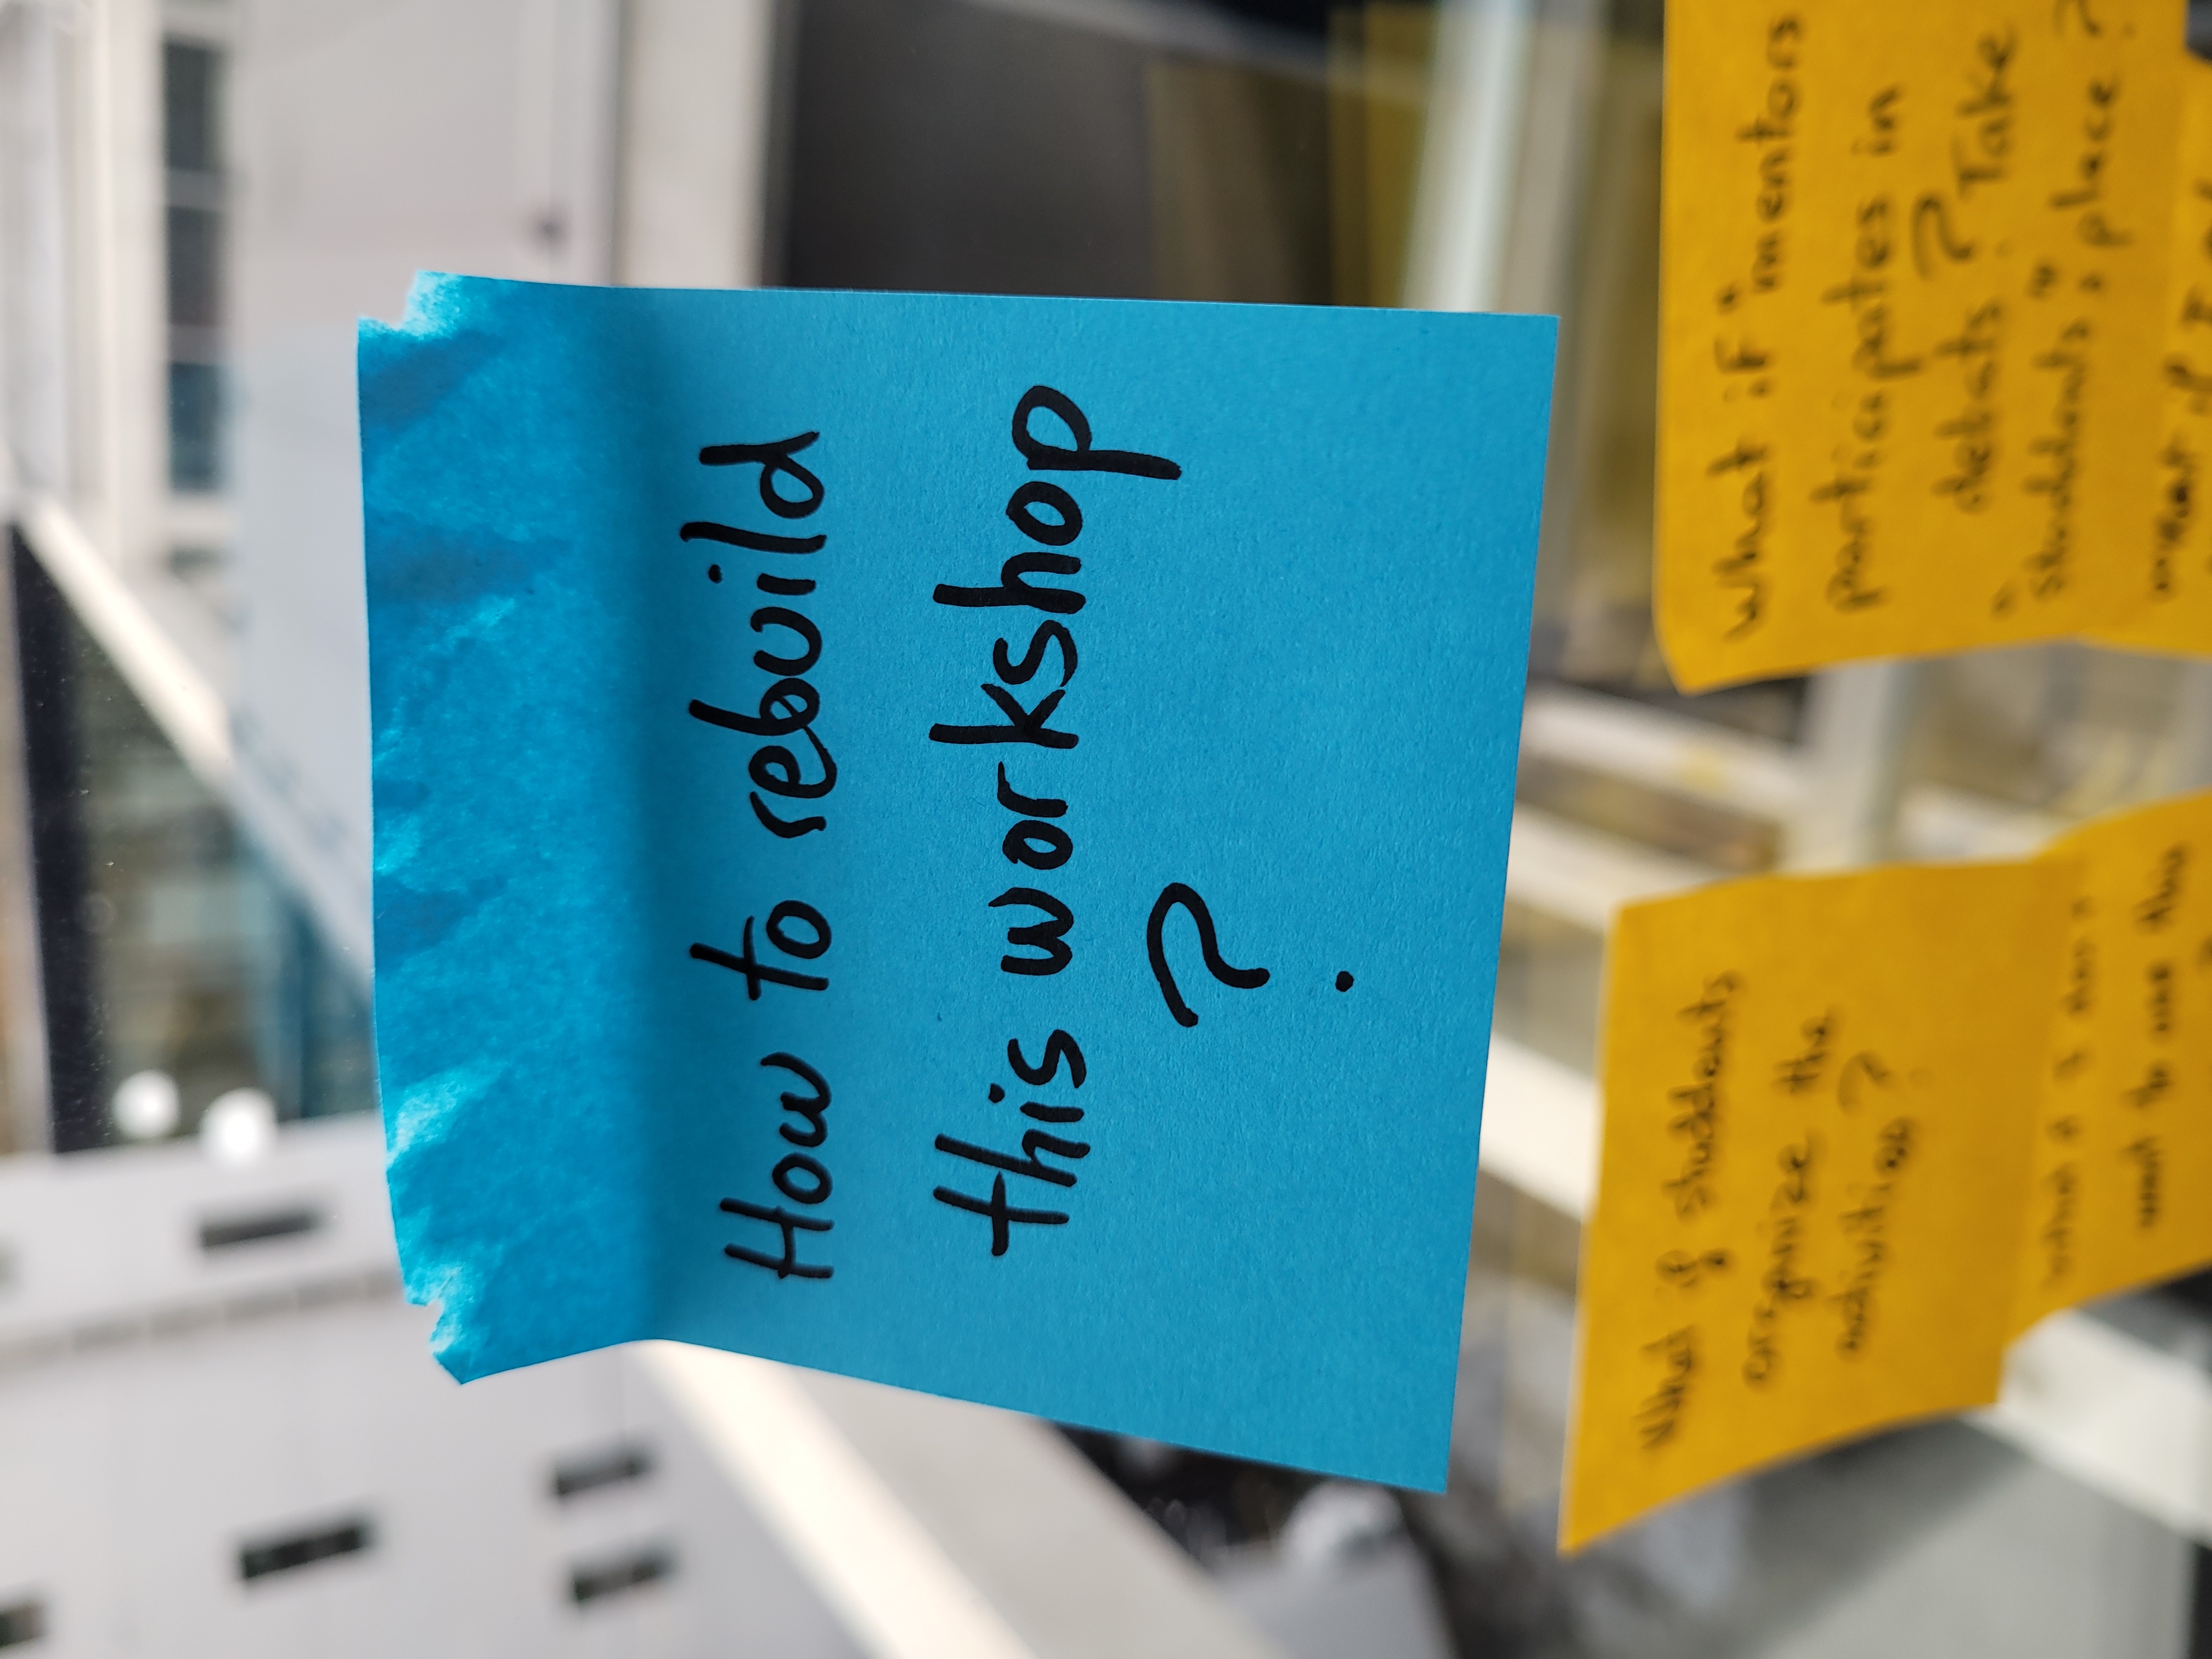 How to rebuild
this workshop
?
What if studdents
organize the
activities?
What if I don't
want to use this
?
What if "mentors
participates in
debats? Take
"studdents" place?
What if I